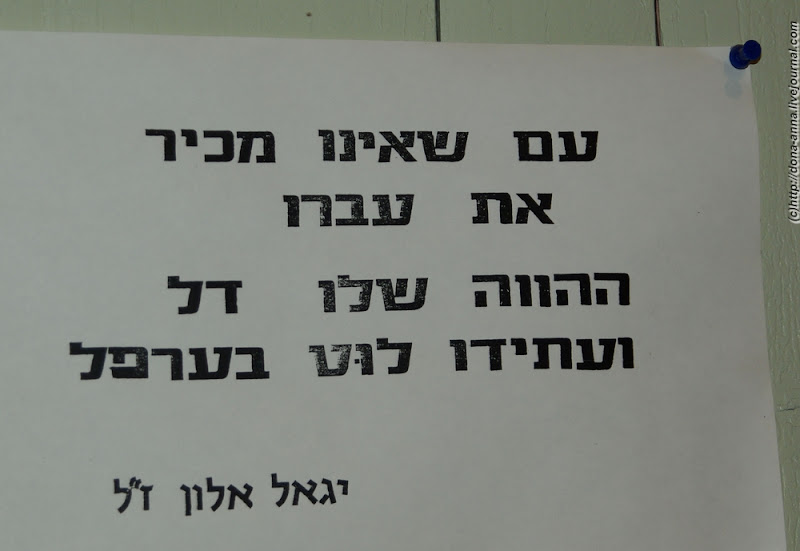 עם שאינו מכיר
את עברו
ההווה שלו דל
ועתידו לוּט בערפל
יגאל אלון ז"ל
(c)http://dona-anna.livejournal.com